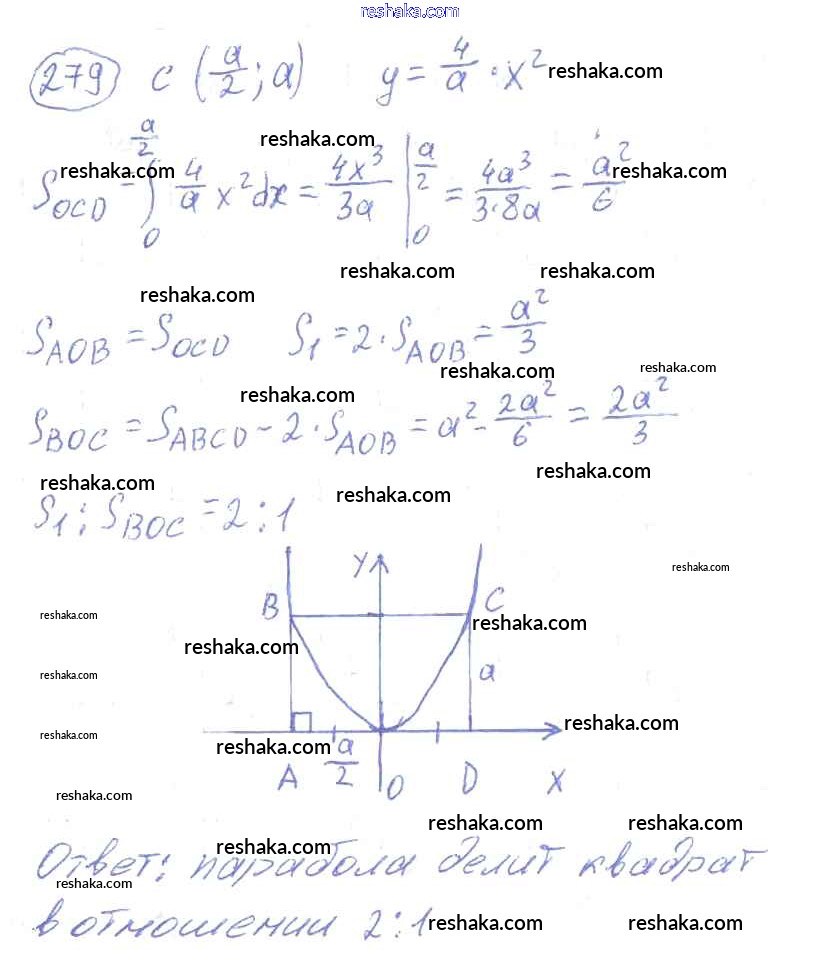 reshaka.com
279 C (a/2; a) y = 4/a · x² reshaka.com
reshaka.com
reshaka.com S_OCD = ∫₀^(a/2) 4/a x²dx = 4x³/3a |₀^(a/2) = 4a³/3·8a = a²/6 reshaka.com
reshaka.com reshaka.com
reshaka.com
S_AOB = S_OCD S₁ = 2 · S_AOB = a²/3
reshaka.com reshaka.com
reshaka.com
S_BOC = S_ABCD - 2 · S_AOB = a² - 2a²/6 = 2a²/3
reshaka.com
reshaka.com reshaka.com
S₁ : S_BOC = 2 : 1
y
reshaka.com
B C
reshaka.com reshaka.com
reshaka.com
reshaka.com a
reshaka.com
reshaka.com reshaka.com
A a/2 O D x
reshaka.com
reshaka.com reshaka.com
Ответ: парабола делит квадрат
reshaka.com
reshaka.com
в отношении 2 : 1
reshaka.com reshaka.com